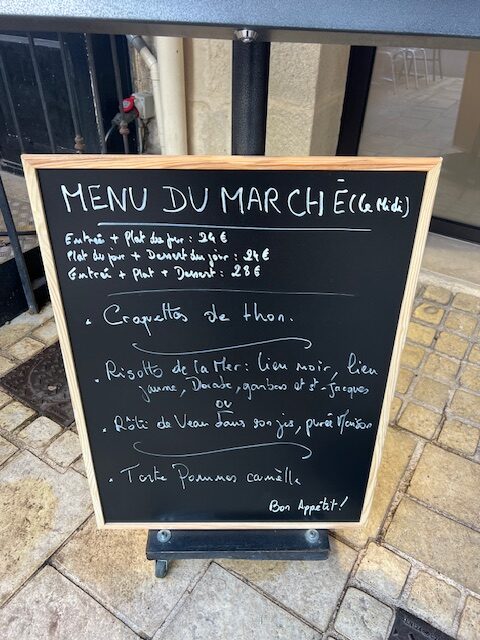 MENU DU MARCHÉ (Le Midi)
Entrée + Plat du jour : 24 €
Plat du jour + Dessert du jour : 24 €
Entrée + Plat + Dessert : 28 €
• Croquettas de thon.
• Risotto de la Mer : lieu noir, lieu
jaune, Dorade, gambas et st-Jacques
ou
• Rôti de Veau dans son jus, purée Maison
• Tarte Pommes camèlle
Bon Appétit !